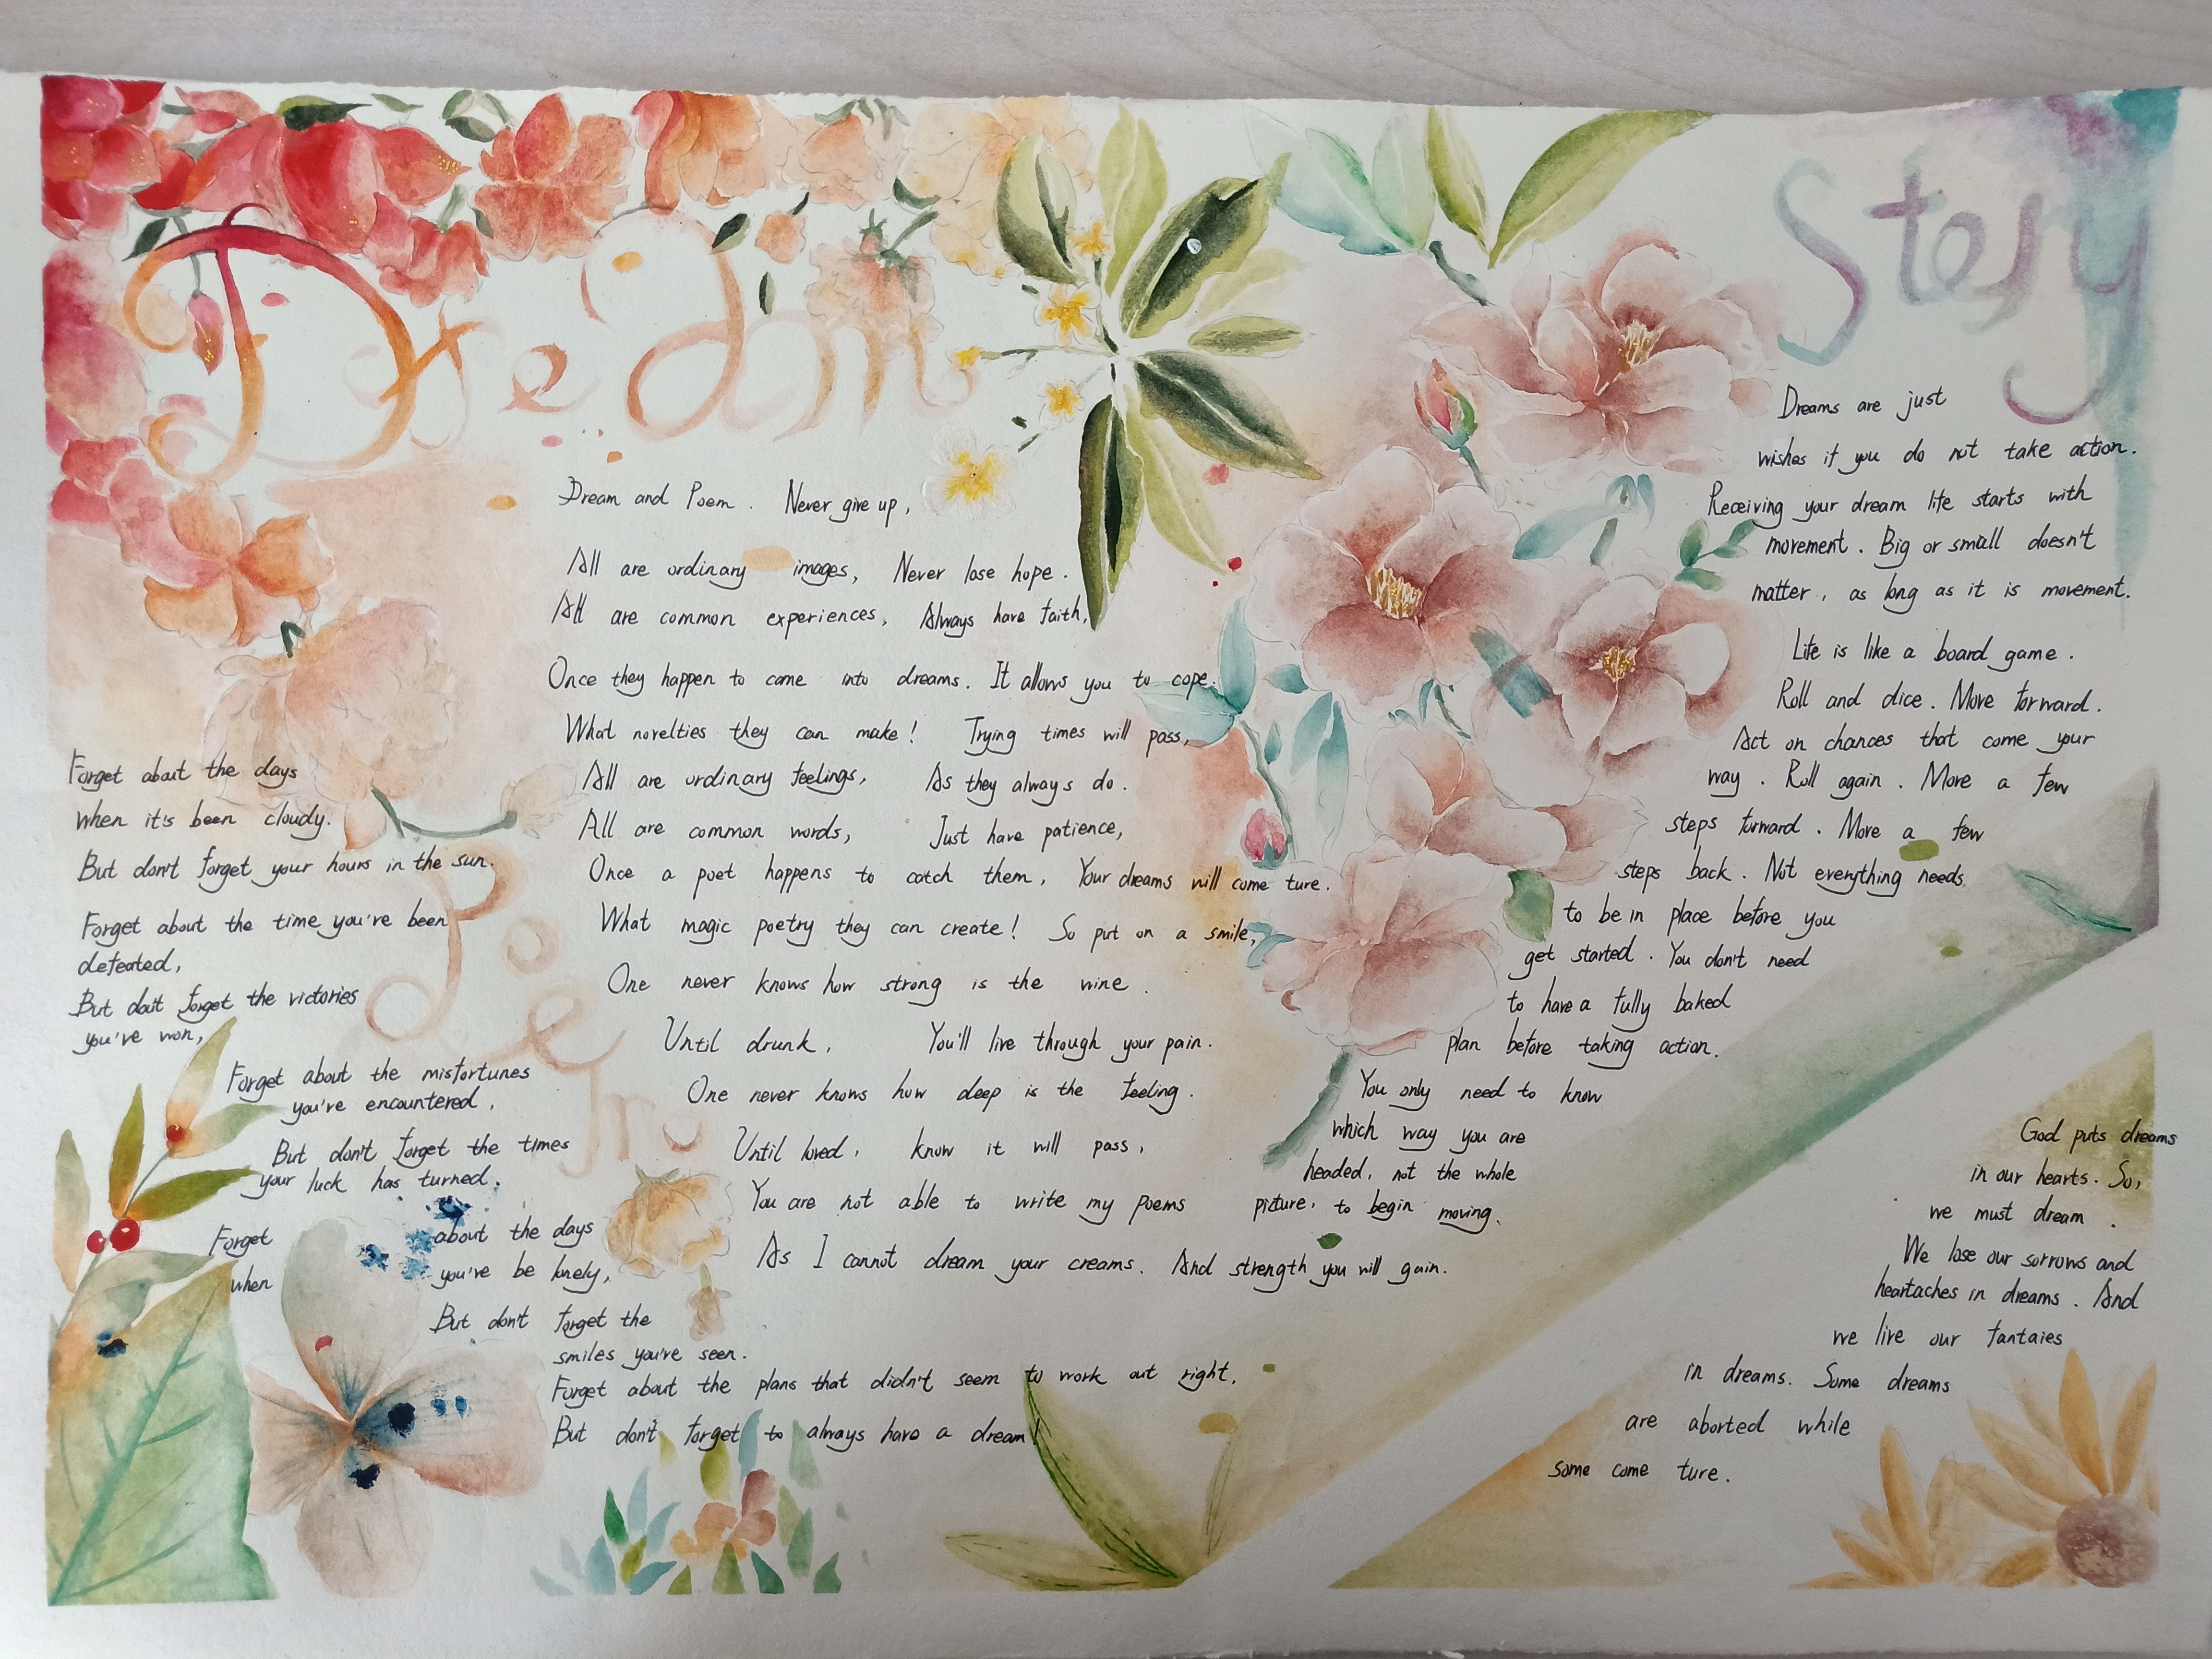 Dream
Story
Poem
Forget about the days
when it's been cloudy.
But don't forget your hours in the sun.
Forget about the time you've been
defeated,
But don't forget the victories
you've won,
Forget about the misfortunes
you've encountered,
But don't forget the times
your luck has turned.
Forget about the days
when you've be lonely,
But don't forget the
smiles you've seen.
Forget about the plans that didn't seem to work out right,
But don't forget to always have a dream!
Dream and Poem. Never give up,
All are ordinary images, Never lose hope.
All are common experiences, Always have faith,
Once they happen to come into dreams. It allows you to cope.
What novelties they can make! Trying times will pass,
All are ordinary feelings, As they always do.
All are common words, Just have patience,
Once a poet happens to catch them, Your dreams will come ture.
What magic poetry they can create! So put on a smile,
One never knows how strong is the wine.
Until drunk, You'll live through your pain.
One never knows how deep is the feeling.
Until loved, know it will pass,
You are not able to write my poems
As I cannot dream your creams. And strength you will gain.
Dreams are just
wishes if you do not take action.
Receiving your dream life starts with
movement. Big or small doesn't
matter, as long as it is movement.
Life is like a board game.
Roll and dice. Move forward.
Act on chances that come your
way. Roll again. More a few
steps forward. More a few
steps back. Not everything needs
to be in place before you
get started. You don't need
to have a fully baked
plan before taking action.
You only need to know
which way you are
headed, not the whole
picture, to begin moving.
God puts dreams
in our hearts. So,
we must dream.
We lose our sorrows and
heartaches in dreams. And
we live our fantaies
in dreams. Some dreams
are aborted while
some come ture.